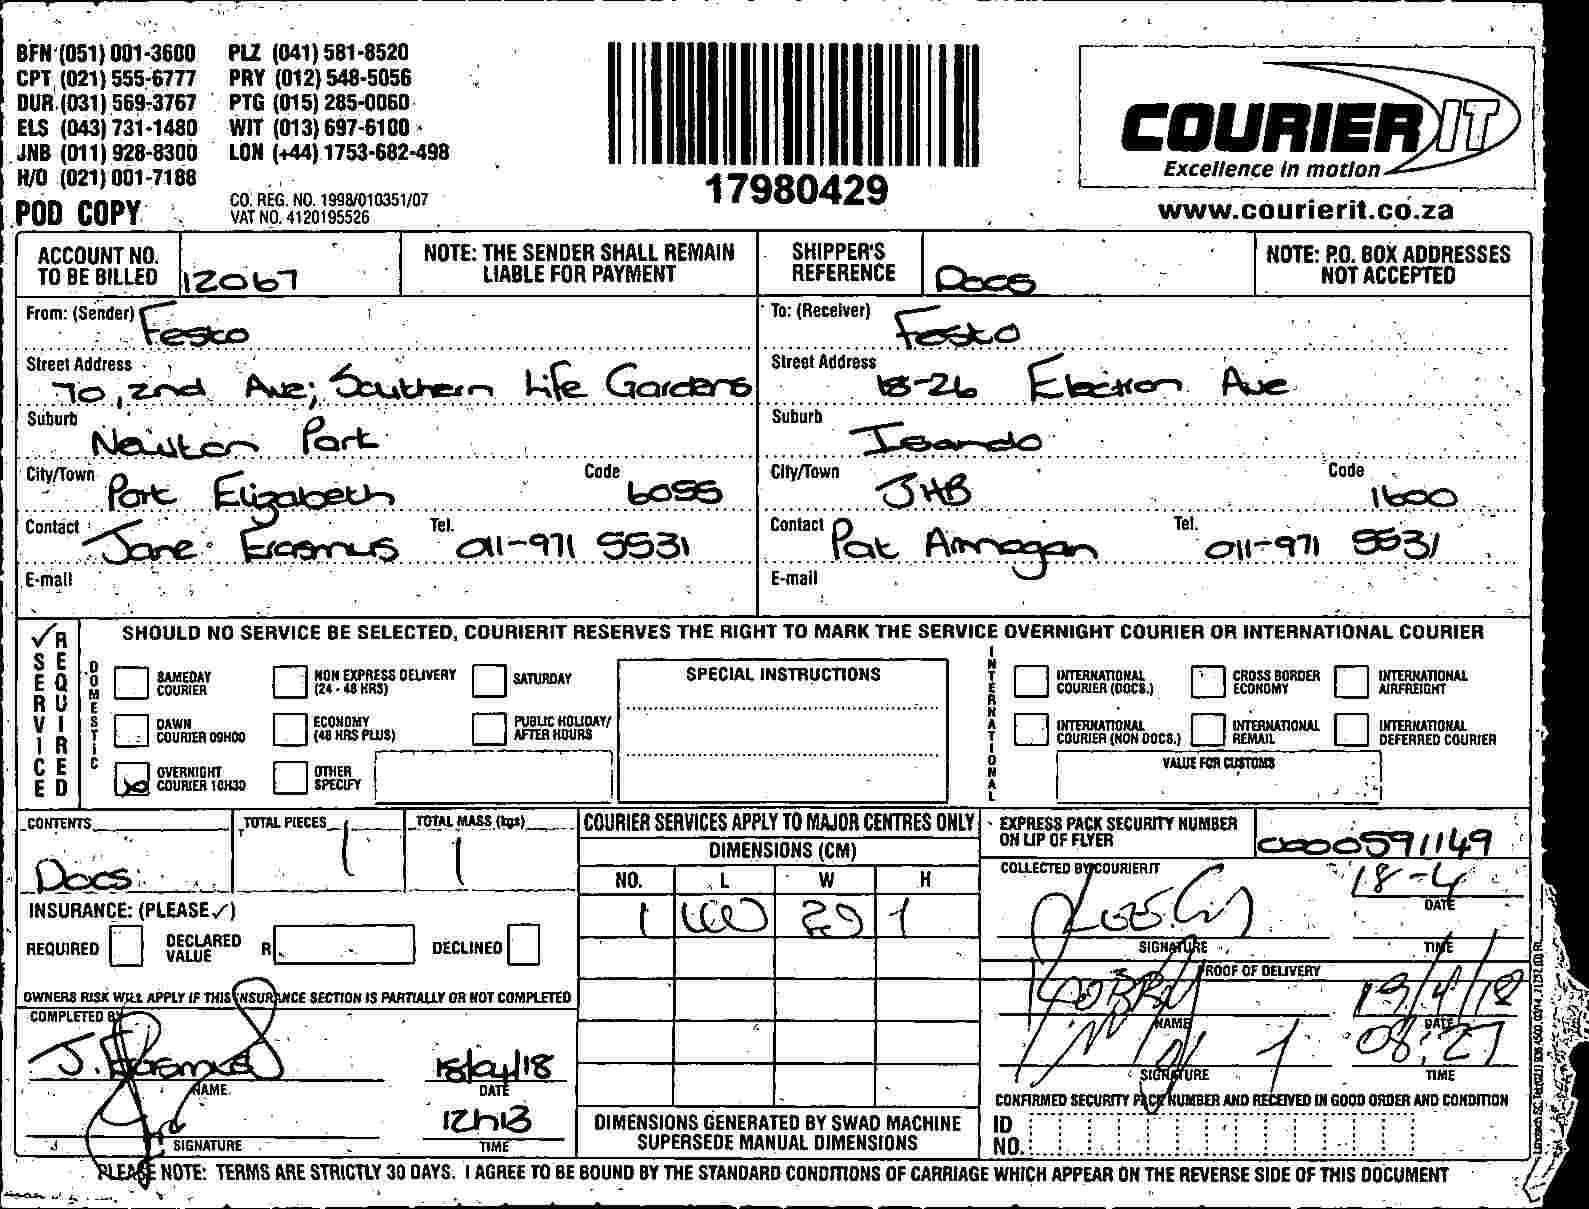 BFN (051) 001-3600 PLZ (041) 581-8520
CPT (021) 555-6777 PRY (012) 548-5056
DUR (031) 569-3767 PTG (015) 285-0060
ELS (043) 731-1480 WIT (013) 697-6100
JNB (011) 928-8300 LON (+44) 1753-682-498
H/O (021) 001-7188
POD COPY
CO. REG. NO. 1998/010351/07
VAT NO. 4120195526
17980429
COURIER IT
Excellence in motion
www.courierit.co.za
ACCOUNT NO. TO BE BILLED 12067
NOTE: THE SENDER SHALL REMAIN LIABLE FOR PAYMENT
SHIPPER'S REFERENCE Docs
NOTE: P.O. BOX ADDRESSES NOT ACCEPTED
From: (Sender) Festo
Street Address 70, 2nd Ave; Southern Life Gardens
Suburb Newton Park
City/Town Port Elizabeth Code 6055
Contact Jane Erasmus Tel. 011-971 5531
E-mail
To: (Receiver) Festo
Street Address 18-26 Electron Ave
Suburb Isando
City/Town JHB Code 1600
Contact Pat Annogan Tel. 011-971 5531
E-mail
SERVICE REQUIRED
SHOULD NO SERVICE BE SELECTED, COURIERIT RESERVES THE RIGHT TO MARK THE SERVICE OVERNIGHT COURIER OR INTERNATIONAL COURIER
DOMESTIC
SAMEDAY COURIER
NON EXPRESS DELIVERY (24 - 48 HRS)
SATURDAY
DAWN COURIER 09H00
ECONOMY (48 HRS PLUS)
PUBLIC HOLIDAY/ AFTER HOURS
OVERNIGHT COURIER 10H30
OTHER SPECIFY
SPECIAL INSTRUCTIONS
INTERNATIONAL
INTERNATIONAL COURIER (DOCS.)
CROSS BORDER ECONOMY
INTERNATIONAL AIRFREIGHT
INTERNATIONAL COURIER (NON DOCS.)
INTERNATIONAL REMAIL
INTERNATIONAL DEFERRED COURIER
VALUE FOR CUSTOMS
CONTENTS Docs
TOTAL PIECES 1
TOTAL MASS (kgs) 1
INSURANCE: (PLEASE ✓)
REQUIRED DECLARED VALUE R DECLINED
OWNERS RISK WILL APPLY IF THIS INSURANCE SECTION IS PARTIALLY OR NOT COMPLETED
COMPLETED BY
J. Erasmus 18/04/18
NAME DATE
12h13
SIGNATURE TIME
COURIER SERVICES APPLY TO MAJOR CENTRES ONLY
DIMENSIONS (CM)
NO. L W H
1 29 1
DIMENSIONS GENERATED BY SWAD MACHINE SUPERSEDE MANUAL DIMENSIONS
EXPRESS PACK SECURITY NUMBER ON LIP OF FLYER 0000591149
COLLECTED BY COURIERIT
18-4
DATE
SIGNATURE TIME
PROOF OF DELIVERY
19/4/18
NAME DATE
08:27
SIGNATURE TIME
CONFIRMED SECURITY PACK NUMBER AND RECEIVED IN GOOD ORDER AND CONDITION
ID NO.
PLEASE NOTE: TERMS ARE STRICTLY 30 DAYS. I AGREE TO BE BOUND BY THE STANDARD CONDITIONS OF CARRIAGE WHICH APPEAR ON THE REVERSE SIDE OF THIS DOCUMENT